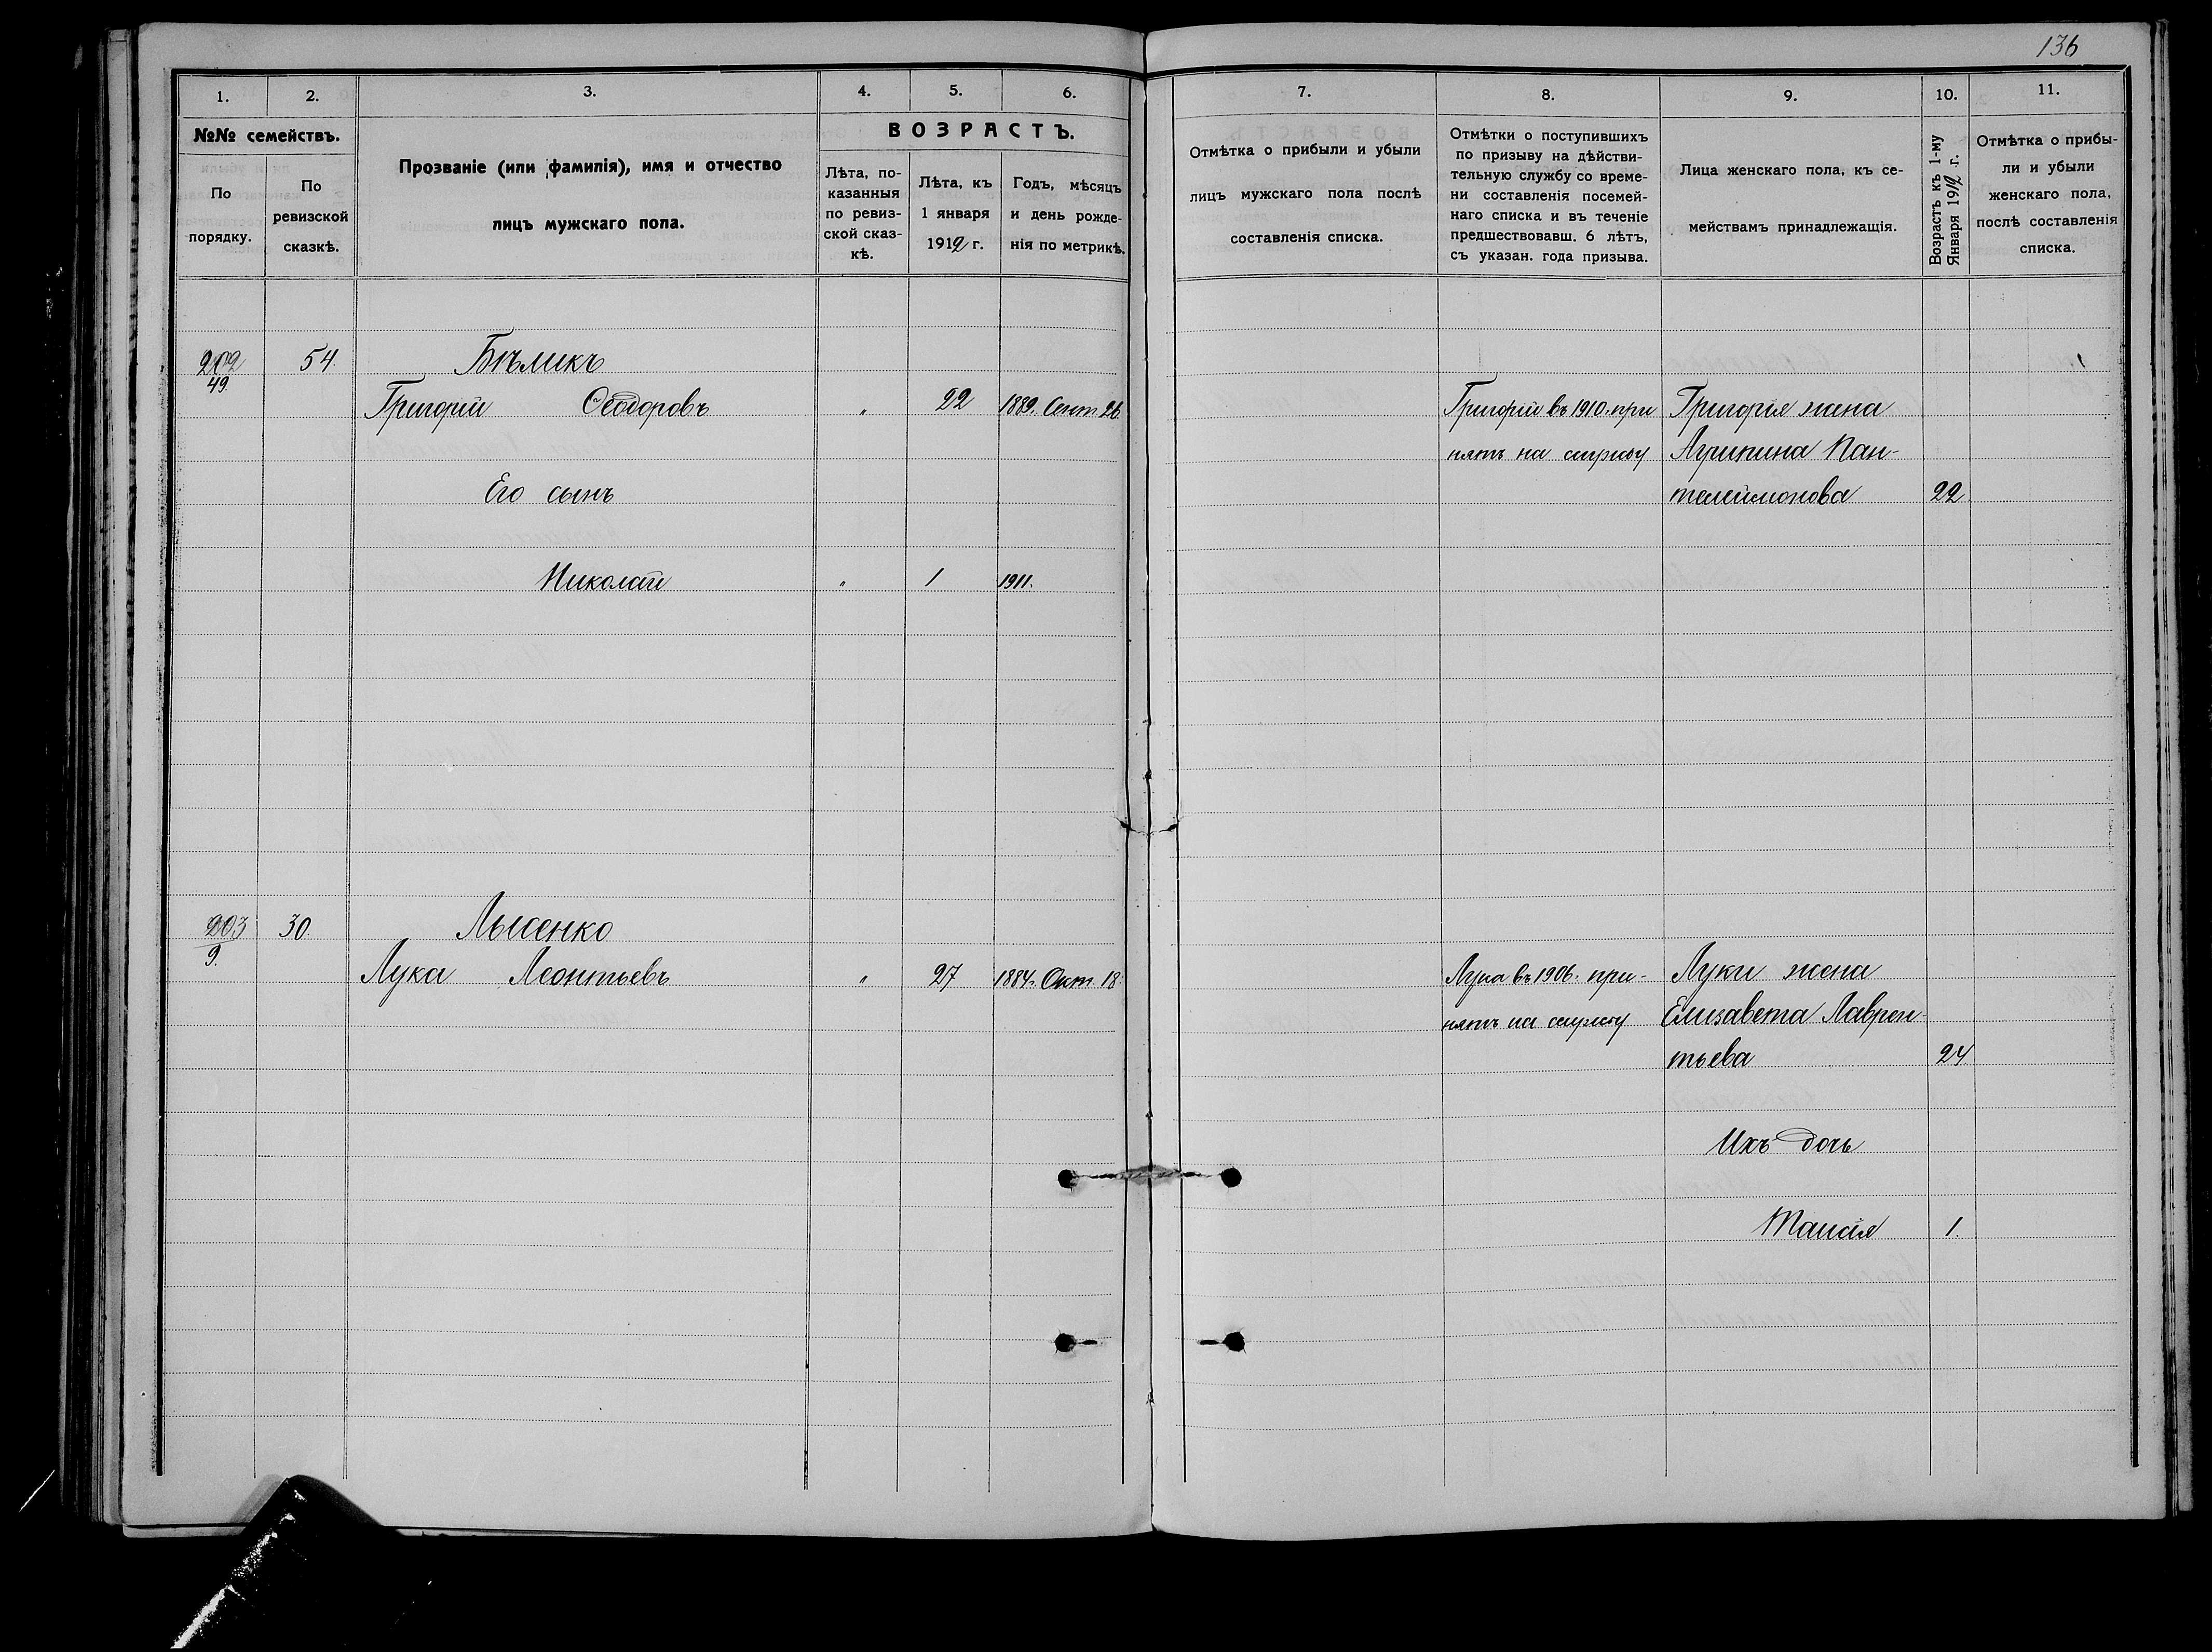 136
1.
2.
3.
4.
5.
6.
7.
8.
9.
10.
11.
№№ семействъ.
По
порядку.
По
ревизской
сказкѣ.
Прозваніе (или фамилія), имя и отчество
лицъ мужскаго пола.
ВОЗРАСТЪ.
Лѣта, по-
казанныя
по ревиз-
ской сказ-
кѣ.
Лѣта, къ
1 января
1912 г.
Годъ, мѣсяцъ
и день рожде-
нія по метрикѣ.
Отмѣтка о прибыли и убыли
лицъ мужскаго пола послѣ
составленія списка.
Отмѣтки о поступившихъ
по призыву на дѣйстви-
тельную службу со време-
ни составленія посемей-
наго списка и въ теченіе
предшествовавш. 6 лѣтъ,
съ указан. года призыва.
Лица женскаго пола, къ се-
мействамъ принадлежащія.
Возрастъ къ 1-му
Января 1912 г.
Отмѣтка о прибы-
ли и убыли
женскаго пола,
послѣ составленія
списка.
202 54. Бѣликъ
49.
Григорій Ѳеодоровъ „ 22 1889. Сент. 26
Григорій въ 1910. при
нятъ на службу
Григорія жена
Агрипина Пан-
телеймонова 22
Его сынъ
Николай „ 1 1911.
203 30. Лысенко
9.
Лука Леонтьевъ „ 27 1884. Окт. 18.
Лука въ 1906. при-
нятъ на службу
Луки жена
Елизавета Лаврен-
тьева 24
Ихъ дочь
Таисія 1.